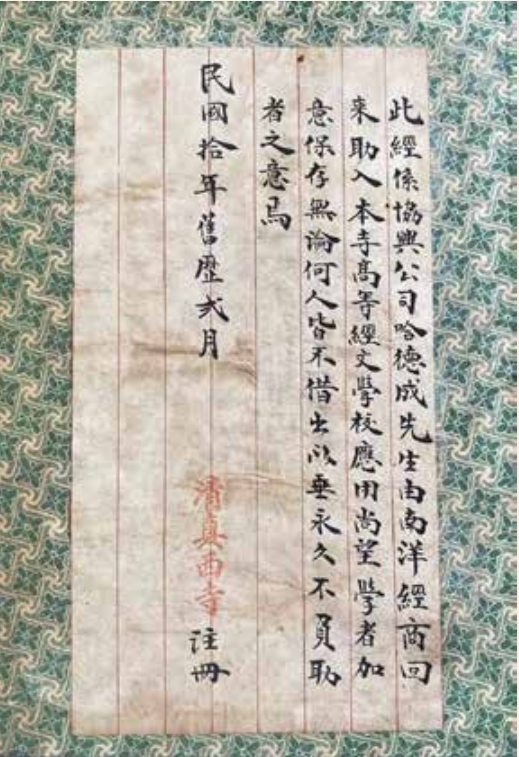 此經係協興公司哈德成先生由南洋經商回
來助入本寺高等經文學校應用尚望 學者加
意保存無論何人皆不借出以垂永久不負助
者之意焉
民國拾年舊歷弍月 清真西寺 註冊